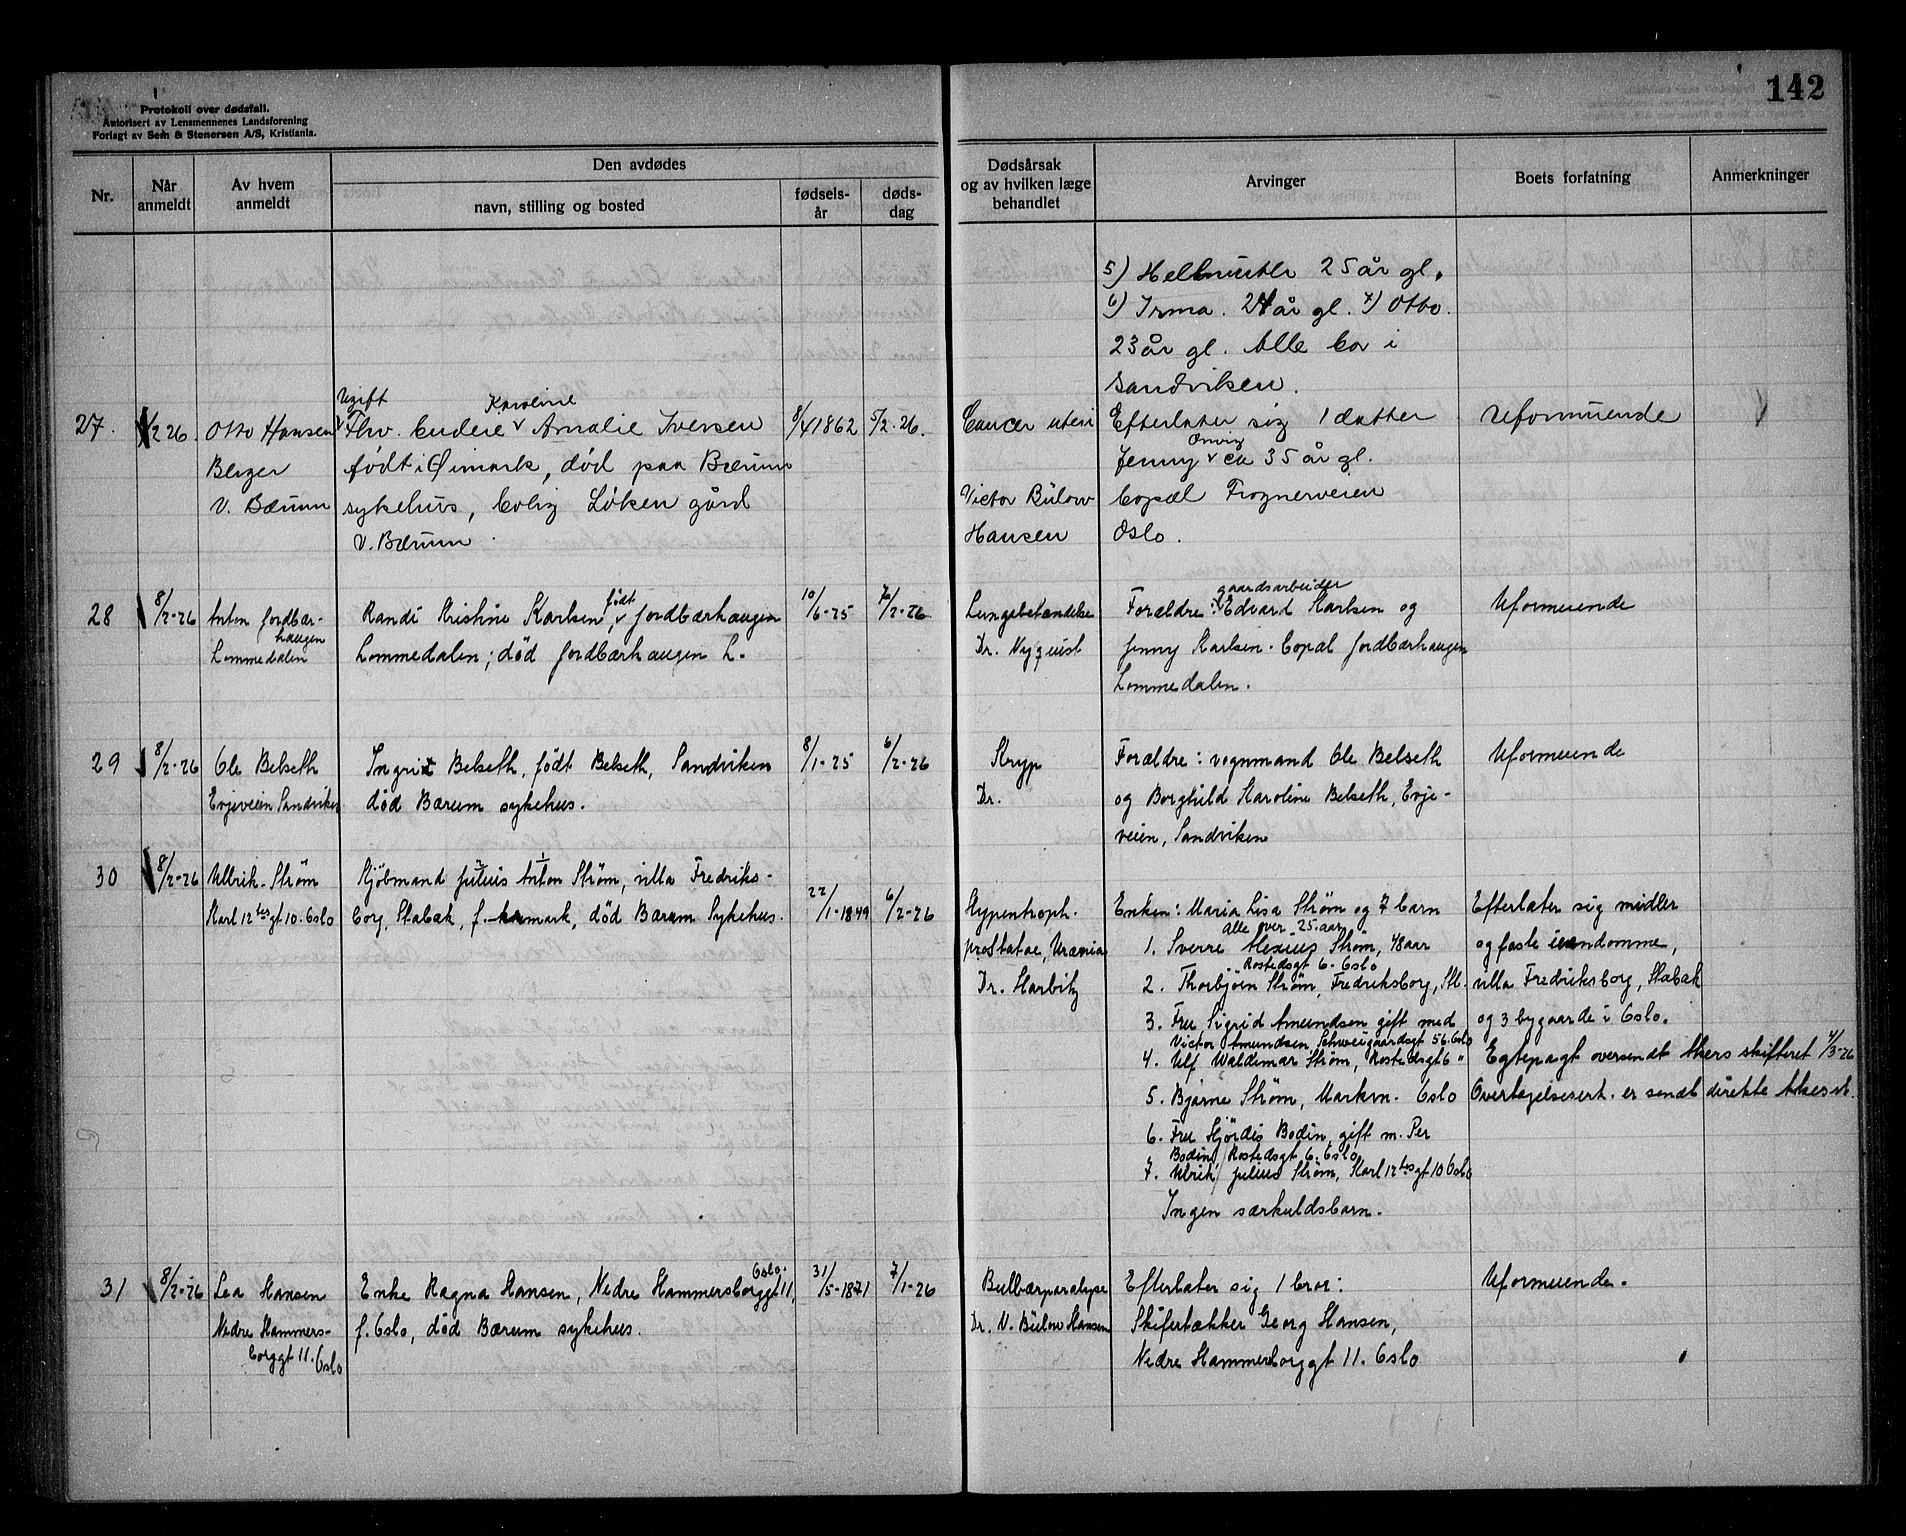 Protokoll over dødsfall.
Autorisert av Lensmennenes Landsforening
Forlagt av Sem & Stenersen A/S, Kristiania.
142
Nr.
Når anmeldt
Av hvem anmeldt
Den avdødes
navn, stilling og bosted
fødsels-år
døds-dag
Dødsårsak
og av hvilken læge
behandlet
Arvinger
Boets forfatning
Anmerkninger
5) 25 år gl.
6) Irma. 24 år gl. 7) Otto.
23 år gl. Alle bor i
Sandviken.
27.
/2 26
Otto Hansen
Berger
V. Bærum
Ugift
Karoline
Fhv. budeie Amalie Iversen
født i Øimark, død paa Bærum
sykehus, bolig Løken gård
V. Bærum.
8/4 1862
5/2-26.
Cancer uteri
Victor Bülow
Hansen
Efterlater sig 1 datter
Jenny ca 35 år gl.
bopæl Frognerveien
Oslo.
Uformuende
28
8/2-26
Anton Jordbær-
haugen
Lommedalen
Randi Kristine Karlsen, født Jordbærhaugen
Lommedalen; død Jordbærhaugen L.
10/6-25
7/2-26
Lungebetændelse
Dr. Nyquist
gaardsarbeider
Forældre: Edvard Karlsen og
Jenny Karlsen. bopæl Jordbærhaugen
Lommedalen.
Uformuende
29
8/2-26
Ole Belseth
Evjeveien Sandviken
Ingrid Belseth, født Belseth, Sandviken
død Bærum sykehus.
8/1-25
6/2-26
Kryp
Dr.
Forældre: vognmand Ole Belseth
og Borghild Karoline Belseth, Evje-
veien, Sandviken
Uformuende
30
8/2-26
Ulrik Strøm
Karl 12tes gt 10. Oslo
2 1
Kjøbmand Julius Anton Strøm, villa Fredriks-
borg, Stabæk, f. død Bærum Sykehus.
22/1-1849
6/2-26
Hypentroph.
prostatae, Uræmia
Dr. Harbitz
Enken: Maria Lisa Strøm og 7 barn
alle over 25 aar
1. Sverre Alexius Strøm, 48 aar
Rostedsgt 6. Oslo
2. Thorbjørn Strøm, Fredriksborg, Stb.
3. Fru Sigrid Amundsen gift med
Victor Amundsen, Schweigaardsgt 56. Oslo
4. Ulf Waldemar Strøm, Rostedsgt 6 "
5. Bjarne Strøm, Markvn. Oslo
6. Fru Hjørdis Bodin, gift m. Per
Bodin, Rostedsgt 6. Oslo
7. Ulrik Julius Strøm, Karl 12tes gt 10 Oslo
Ingen særkuldsbarn.
Efterlater sig midler
og faste eiendomme,
villa Fredriksborg, Stabæk
og 3 bygaarde i Oslo.
Egtepagt oversendt Akers skifteret 4/3-26
Overtagelsesert. er sendt direkte
31
8/2-26
Lea Hansen
Nedre Hammers-
borggt 11. Oslo
Oslo.
Enke Ragna Hansen, Nedre Hammersborggt 11,
f. Oslo, død Bærum sykehus.
31/5-1871
7/1-26
Bulbærparalyse
Dr. V. Bülow Hansen
Efterlater sig 1 bror:
Skifertækker Georg Hansen,
Nedre Hammersborggt 11. Oslo
Uformuende.